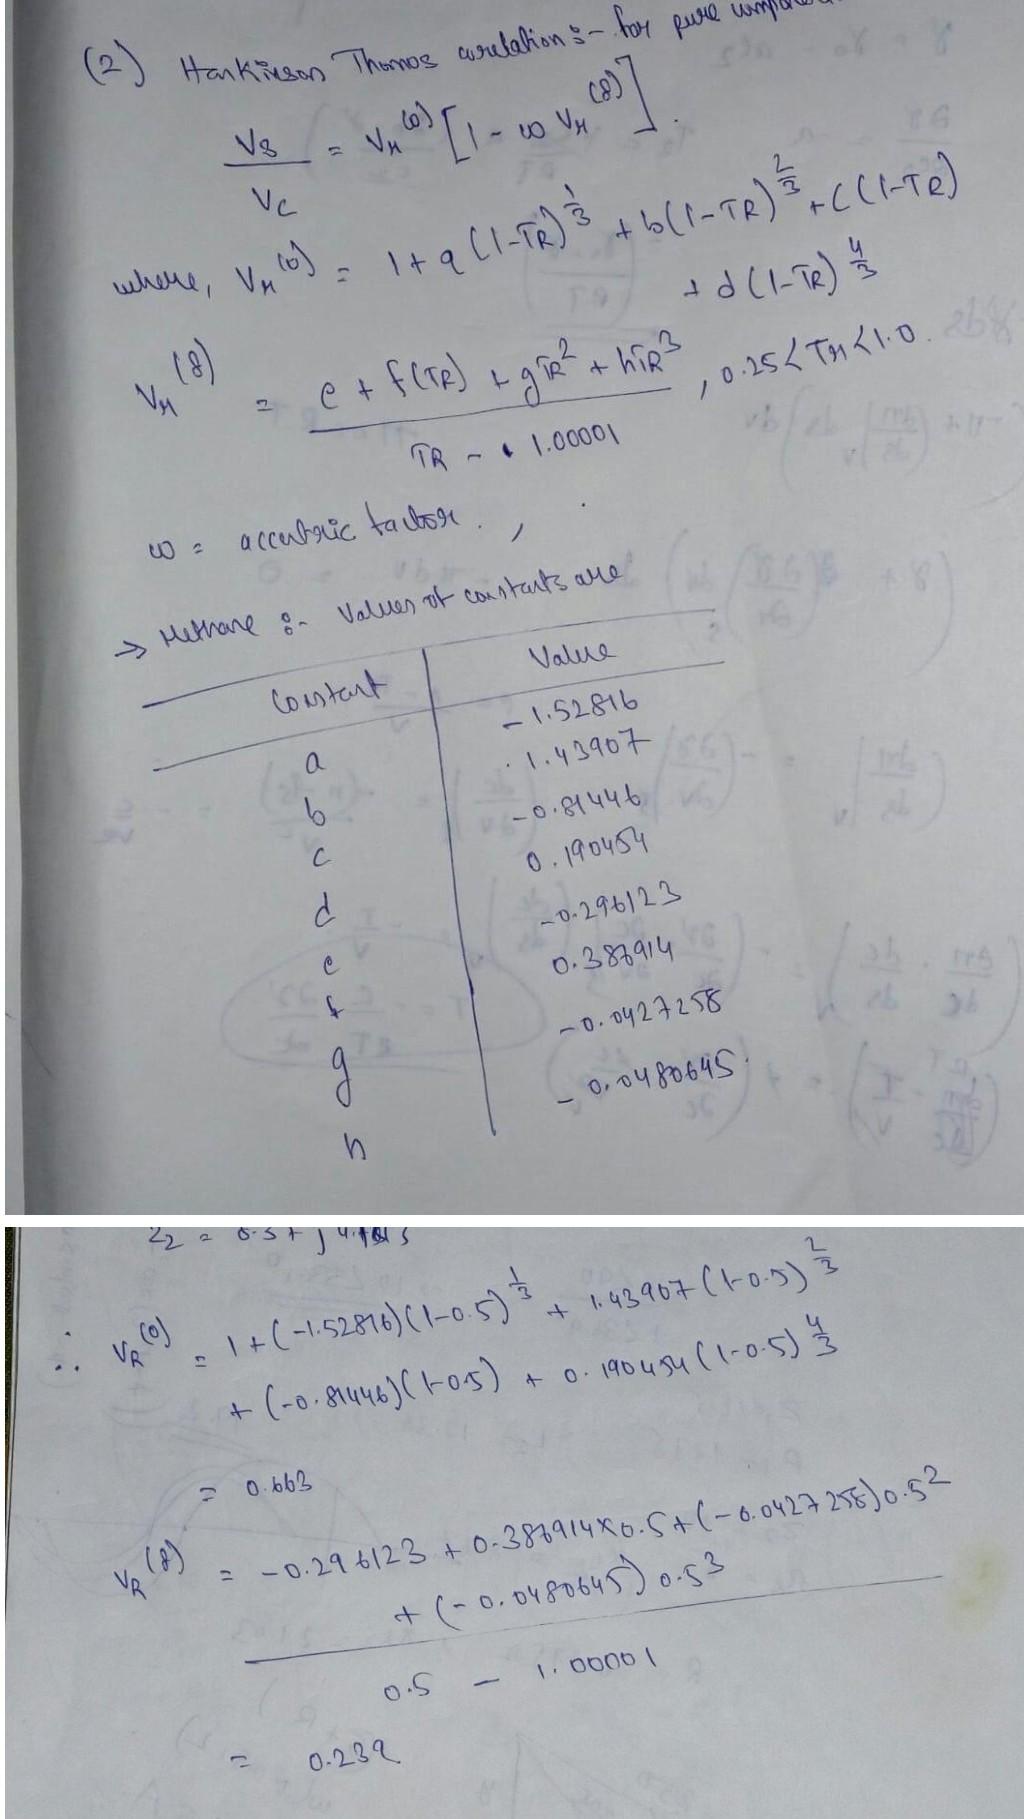 (2) Hankinson Thomas corelation :- for pure
Vs / Vc = VR(0) [1 - ω VR(8)].
where, VR(0) = 1 + a (1-TR)^1/3 + b(1-TR)^2/3 + C(1-TR)
+ d (1-TR)^4/3
VR(8) = e + f(TR) + gTR^2 + hTR^3 / TR - 1.00001 , 0.25 < TR < 1.0.
ω = accentric factor. ,
→ Methane :- Values of constants are
Constant Value
a -1.52816
b 1.43907
c -0.81446
d 0.190454
e -0.296123
f 0.386914
g -0.0427258
h -0.0480645
∴ VR(0) = 1 + (-1.52816)(1-0.5)^1/3 + 1.43907 (1-0.5)^2/3
+ (-0.81446)(1-0.5) + 0.190454 (1-0.5)^4/3
= 0.663
VR(8) = -0.296123 + 0.386914×0.5 + (-0.0427258)0.5^2
+ (-0.0480645) 0.5^3
0.5 - 1.00001
= 0.232